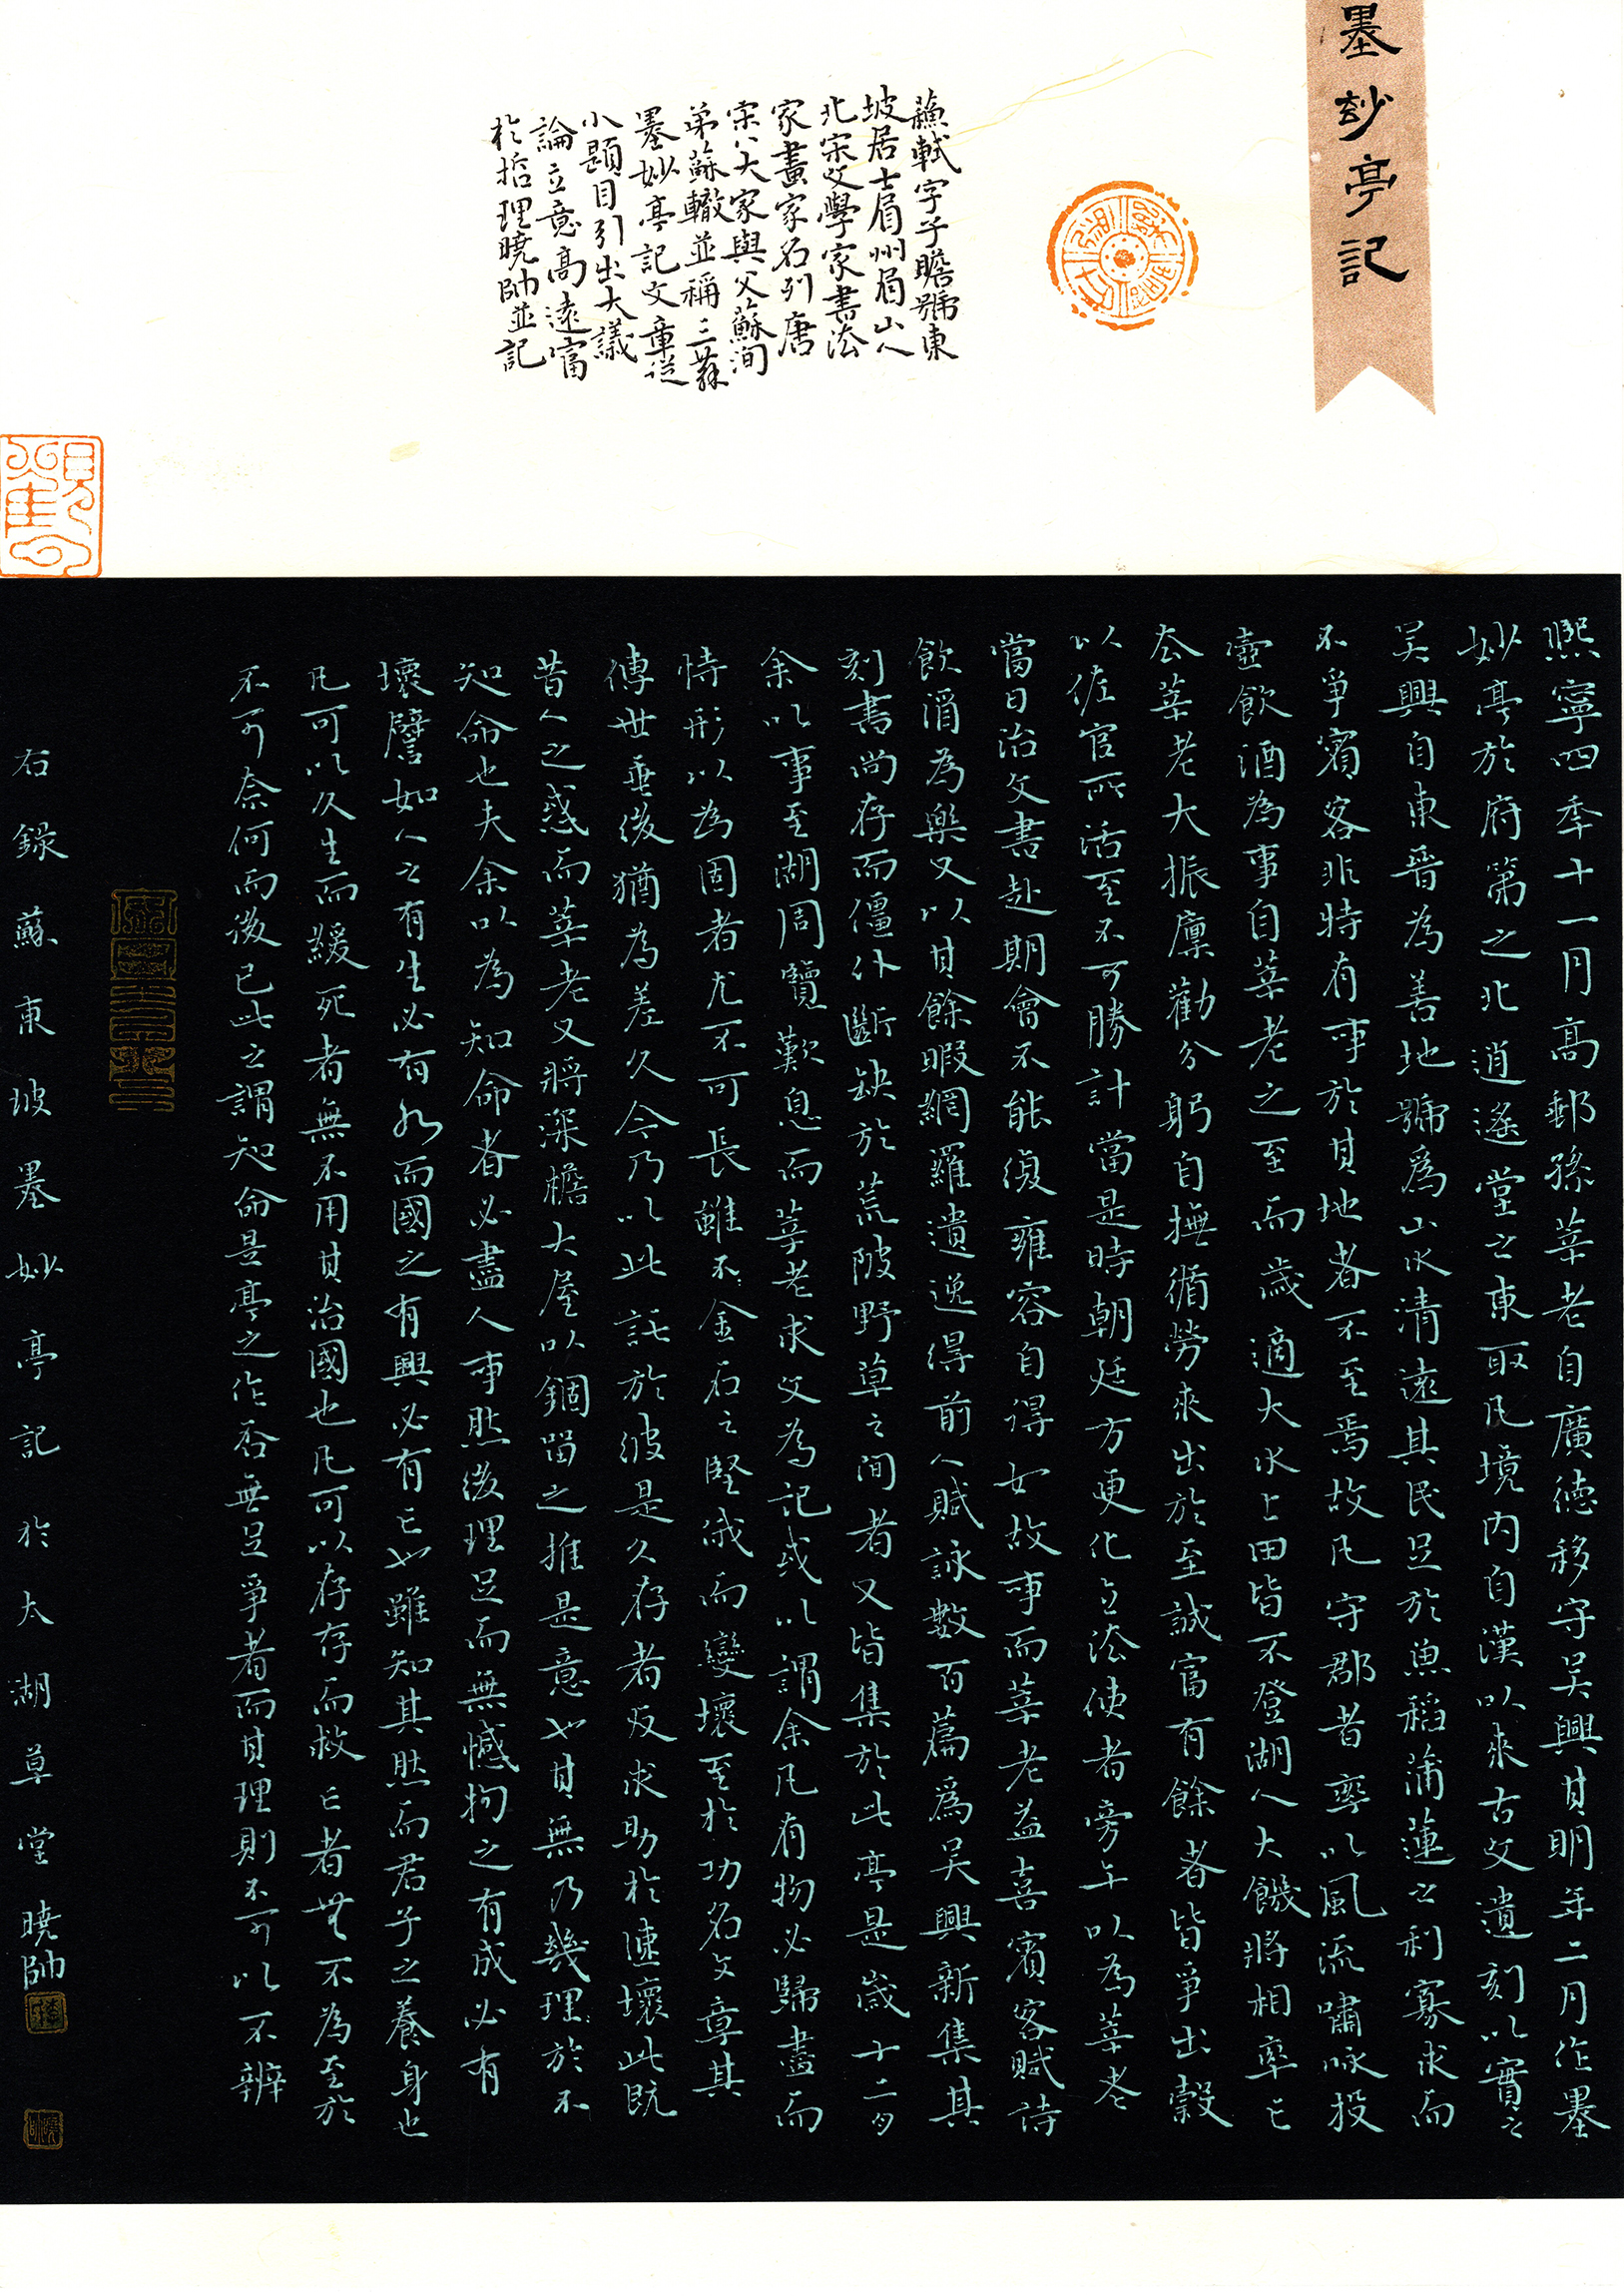 墨玅亭記
蘓軾字子瞻號東
坡居士眉州眉山人
北宋文學家書法
家畫家名列唐
宋八大家與父蘇洵
弟蘇轍並稱三蘇
墨妙亭記文章從
小題目引出大議
論立意高遠富
於哲理曉帥並記
熙寧四年十一月高郵孫莘老自廣德移守吳興其明年二月作墨
妙亭於府第之北逍遙堂之東取凡境內自漢以來古文遺刻以實之
吳興自東晉為善地號為山水清遠其民足於魚稻蒲蓮之利寡求而
不爭賓客非特有事於其地者不至焉故凡守郡者率以風流嘯咏投
壺飲酒為事自莘老之至而歲適大水上田皆不登湖人大饑將相率亡
去莘老大振廩勸分躬自撫循勞來出於至誠富有餘者皆爭出穀
以佐官所活至不可勝計當是時朝廷方更化立法使者旁午以為莘老
當日治文書赴期會不能復雍容自得如故事而莘老益喜賓客賦詩
飲酒為樂又以其餘暇網羅遺逸得前人賦詠數百篇為吳興新集其
刻書尚存而僵仆斷缺於荒陂野草之間者又皆集於此亭是歲十二月
余以事至湖周覽歎息而莘老求文為記或以謂余凡有物必歸盡而
恃形以為固者尤不可長雖不金石之堅俄而變壞至於功名文章其
傳世垂後猶為差久今乃以此託於彼是久存者反求助於速壞此既
昔人之惑而莘老又將深檐大屋以錮留之推是意也其無乃幾理於不
知命也夫余以為知命者必盡人事然後理足而無憾物之有成必有
壞譬如人之有生必有死而國之有興必有亡也雖知其然而君子之養身也
凡可以久生而緩死者無不用其治國也凡可以存存而救亡者無不為至於
不可奈何而後已此之謂知命是亭之作否無足爭者而其理則不可以不辨
右錄蘇東坡墨妙亭記於太湖草堂曉帥